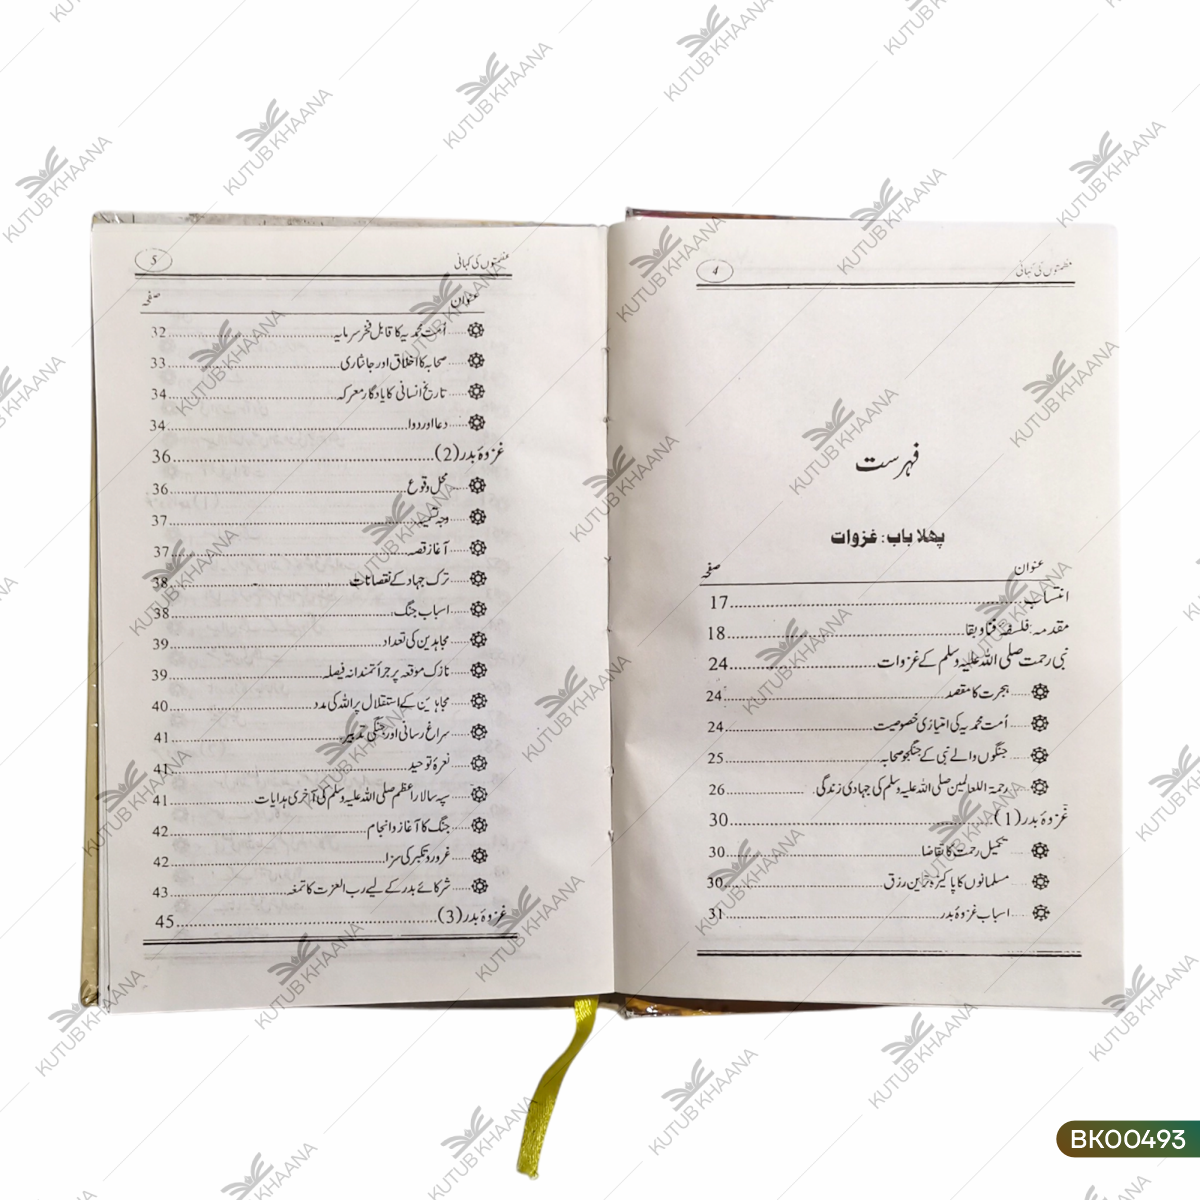 عظمتوں کی کہانی
4
فہرست
پھلا باب: غزوات
عنوان صفحہ
انتساب 17
مقدمہ: فلسفہ فنا و بقا 18
نبی رحمت صلی اللہ علیہ وسلم کے غزوات 24
ہجرت کا مقصد 24
اُمت محمدیہ کی امتیازی خصوصیت 24
جنگوں والے نبی کے جنگجو صحابہ 25
رحمۃ اللعالمین صلی اللہ علیہ وسلم کی جہادی زندگی 26
غزوۂ بدر (1) 30
تکمیل رحمت کا تقاضا 30
مسلمانوں کا پاکیزہ ترین رزق 30
اسباب غزوۂ بدر 31
عظمتوں کی کہانی
5
عنوان صفحہ
اُمت محمدیہ کا قابل فخر سرمایہ 32
صحابہ کا اخلاق اور جانثاری 33
تاریخ انسانی کا یادگار معرکہ 34
دعا اور دوا 34
غزوۂ بدر (2) 36
محل وقوع 36
وجہ تسمیہ 37
آغاز قصہ 37
ترک جہاد کے نقصانات 38
اسباب جنگ 38
مجاہدین کی تعداد 39
نازک موقعہ پر جرأتمندانہ فیصلہ 39
مجاہدین کے استقلال پر اللہ کی مدد 40
سراغ رسانی اور جنگی تدبیر 41
نعرۂ توحید 41
سپہ سالار اعظم صلی اللہ علیہ وسلم کی آخری ہدایات 41
جنگ کا آغاز و انجام 42
غرور و تکبر کی سزا 42
شرکائے بدر کے لیے رب العزت کا تمغہ 43
غزوۂ بدر (3) 45
KUTUB KHAANA
BK00493